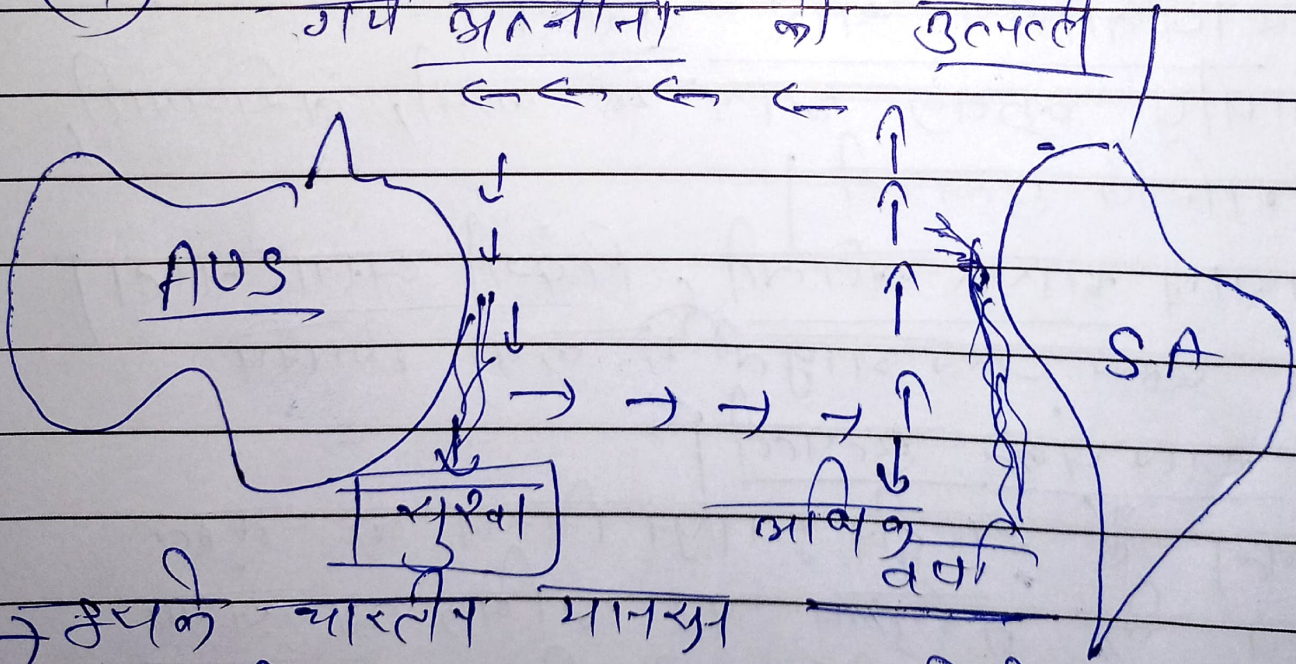 गये अलनीनो की उत्पत्ती
AUS
SA
सुखा
अधिक
वर्षा
→ इसके भारतीय मानसून